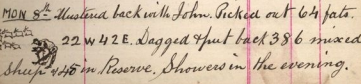 MON 8th. Mustered back with John. Picked out 64 fats.
22 W 42 E. Dagged & put back 386 mixed
Sheep & 45 in Reserve. Showers in the evening.